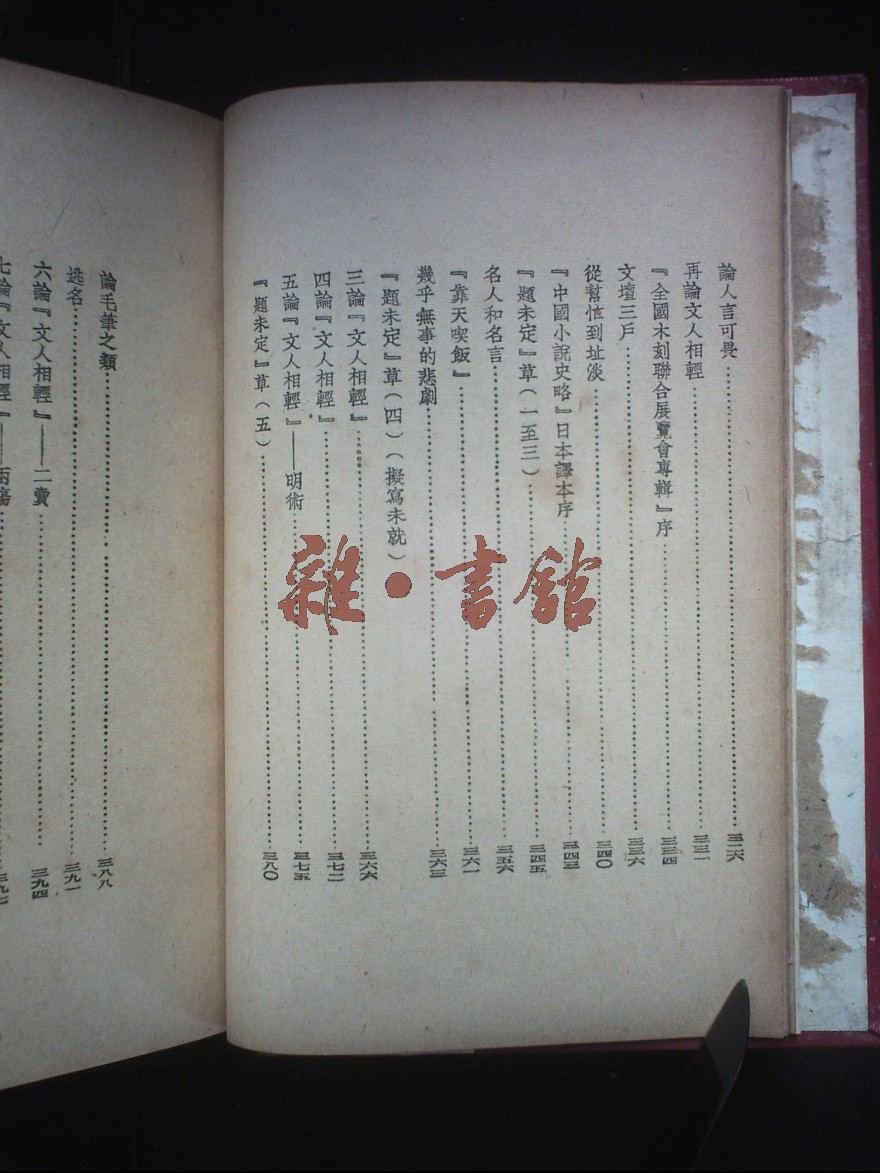 論人言可畏…………三二六
再論文人相輕…………三三一
『全國木刻聯合展覽會專輯』序…………三三四
文壇三戶…………三三六
從幫忙到扯淡…………三四〇
『中國小說史略』日本譯本序…………三四三
『題未定』草（一至三）…………三四五
名人和名言…………三五六
『靠天喫飯』…………三六一
幾乎無事的悲劇…………三六三
『題未定』草（四）（擬寫未就）
三論『文人相輕』…………三六六
四論『文人相輕』…………三七二
五論『文人相輕』——明術…………三七五
『題未定』草（五）…………三八〇
論毛筆之類…………三八八
逃名…………三九一
六論『文人相輕』——二賣…………三九四
七論『文人相輕』——兩傷
雜・書館